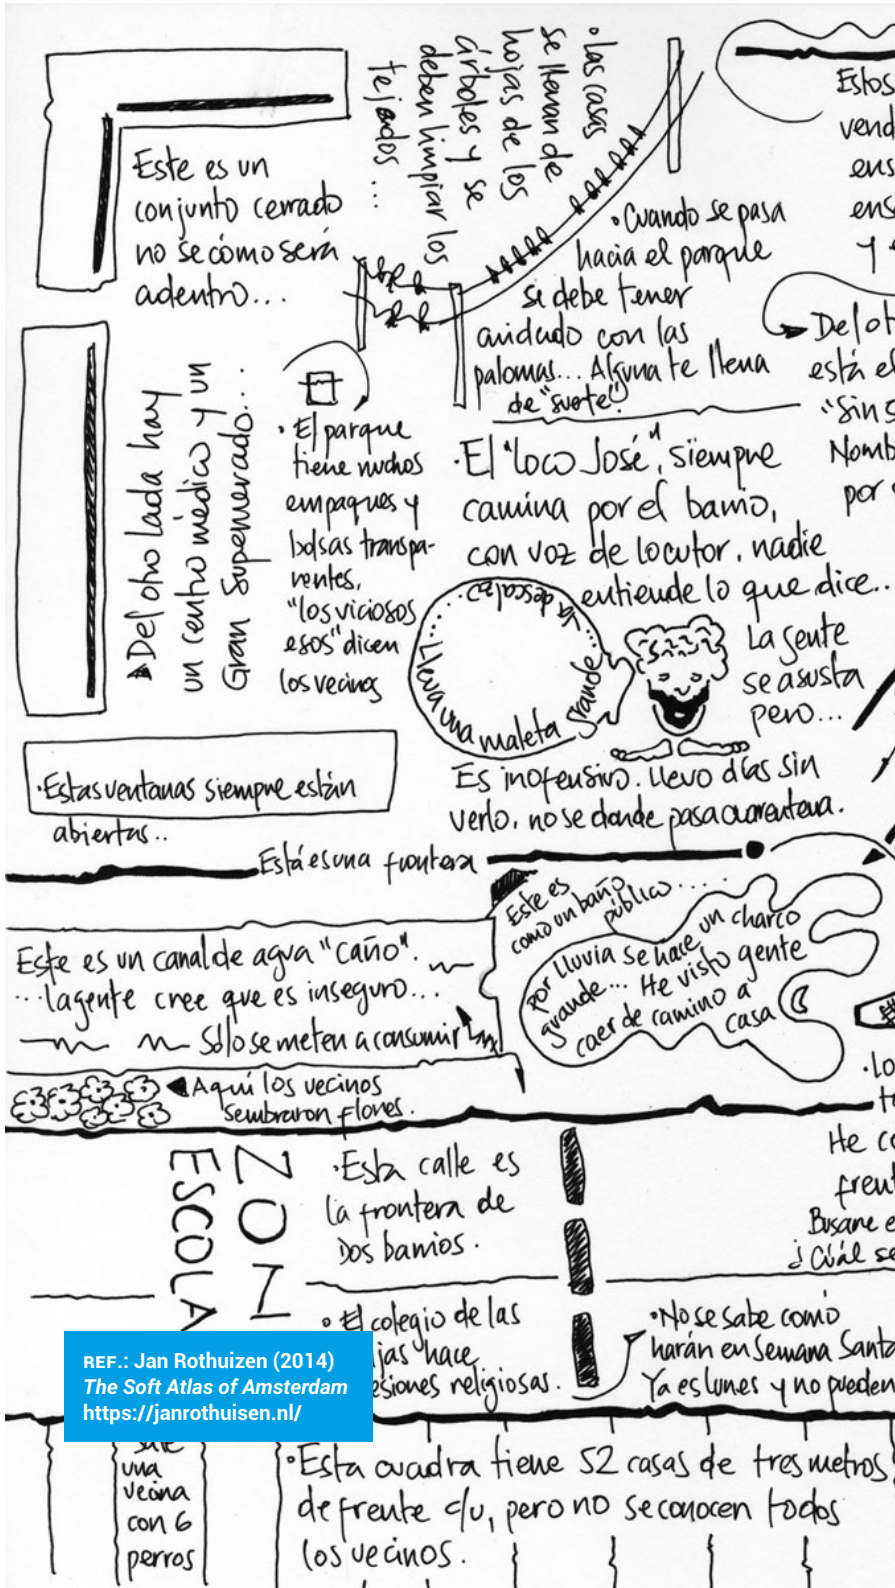 Este es un
conjunto cerrado
no se cómo será
adentro...
• las casas
se llenan de
hojas de los
árboles y se
deben limpiar los
tejados ...
• Cuando se pasa
hacia el parque
se debe tener
cuidado con las
palomas... Alguna te llena
de "suerte".
Estos
vend
ens
ens
y
Del ot
está e
"Sin s
Nomb
por
Del otro lado hay
un centro médico y un
Gran Supermercado...
• El parque
tiene muchos
empaques y
bolsas transpa-
rentes,
"los viciosos
esos" dicen
los vecinos
• El "loco José", siempre
camina por el barrio,
con voz de locutor, nadie
entiende lo que dice...
Lleva una maleta grande...
va descalzo......
La gente
se asusta
pero...
Es inofensivo. Llevo días sin
verlo, no se donde pasa cuarentena.
• Estas ventanas siempre están
abiertas..
Está es una frontera
Este es
como un baño
público .....
por lluvia se hace un charco
grande... He visto gente
caer de camino a
casa
Este es un canal de agua "caño".
... la gente cree que es inseguro...
Sólo se meten a consumir
Aquí los vecinos
sembraron flores.
ZON
ESCOLA
• Esta calle es
la frontera de
Dos barrios.
• Lo
He co
frent
Busane e
¿Cuál se
• El colegio de las
jas hace
esiones religiosas.
• No se sabe como
harán en Semana Santa
Ya es lunes y no pueden
REF.: Jan Rothuizen (2014)
The Soft Atlas of Amsterdam
https://janrothuisen.nl/
sale
una
vecina
con 6
perros
• Esta cuadra tiene 52 casas de tres metros
de frente c/u, pero no se conocen todos
los vecinos.